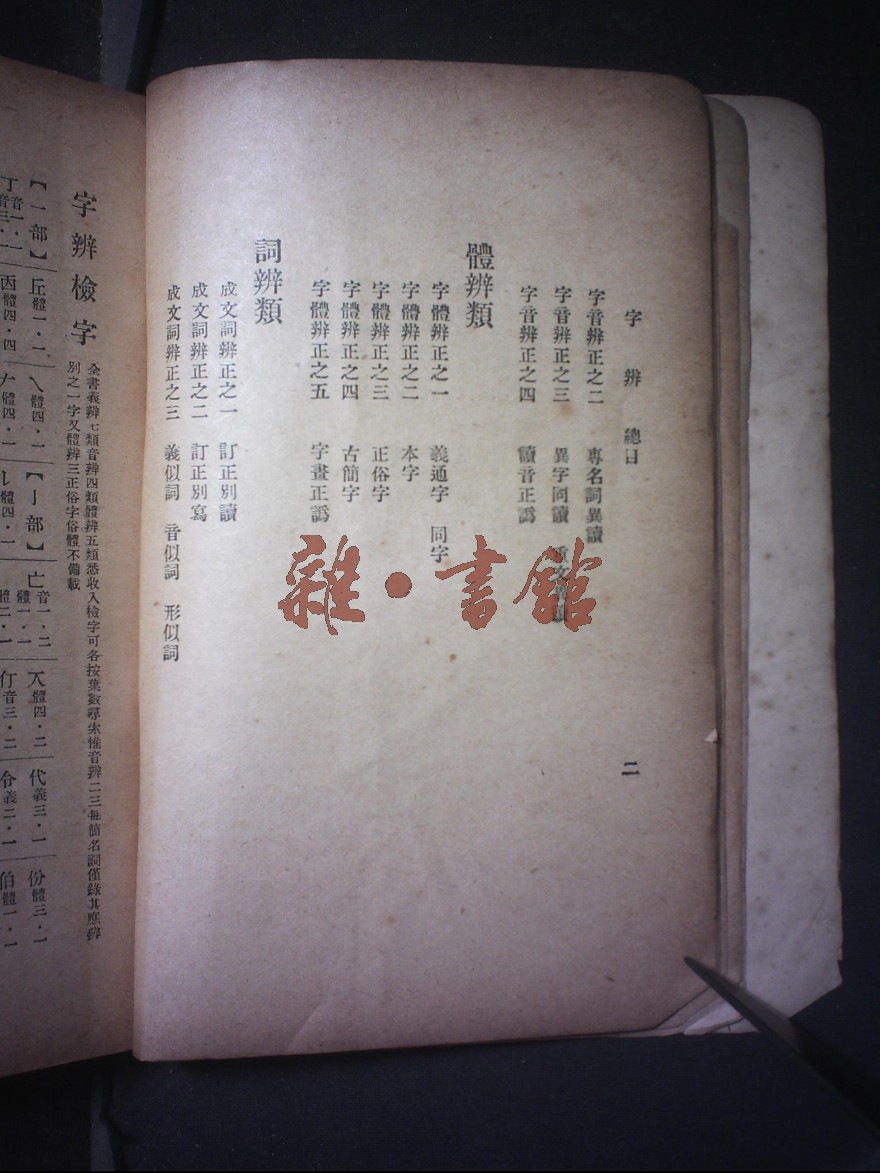 字辨總目
二
字音辨正之二 專名詞異讀
字音辨正之三 異字同讀
字音辨正之四 讀音正譌
體辨類
字體辨正之一 義通字 同字
字體辨正之二 本字
字體辨正之三 正俗字
字體辨正之四 古簡字
字體辨正之五 字畫正譌
詞辨類
成文詞辨正之一 訂正別讀
成文詞辨正之二 訂正別寫
成文詞辨正之三 義似詞 音似詞 形似詞
雜·書館
字辨檢字
全書義辨七類音辨四類體辨五類悉收入檢字可各按葉數尋求惟音辨二三每簡名詞僅錄其應辨
別之一字又體辨三正俗字俗體不備載
【一部】
丘體一·二
體四·一
【亅部】
亡音一·二
體一·一
體四·二
代義三·一
份體三·一
丁音一·一
音三·一
丙體四·四
體四·一
體四·一
仃音三·二
令義二·一
伯體一·一